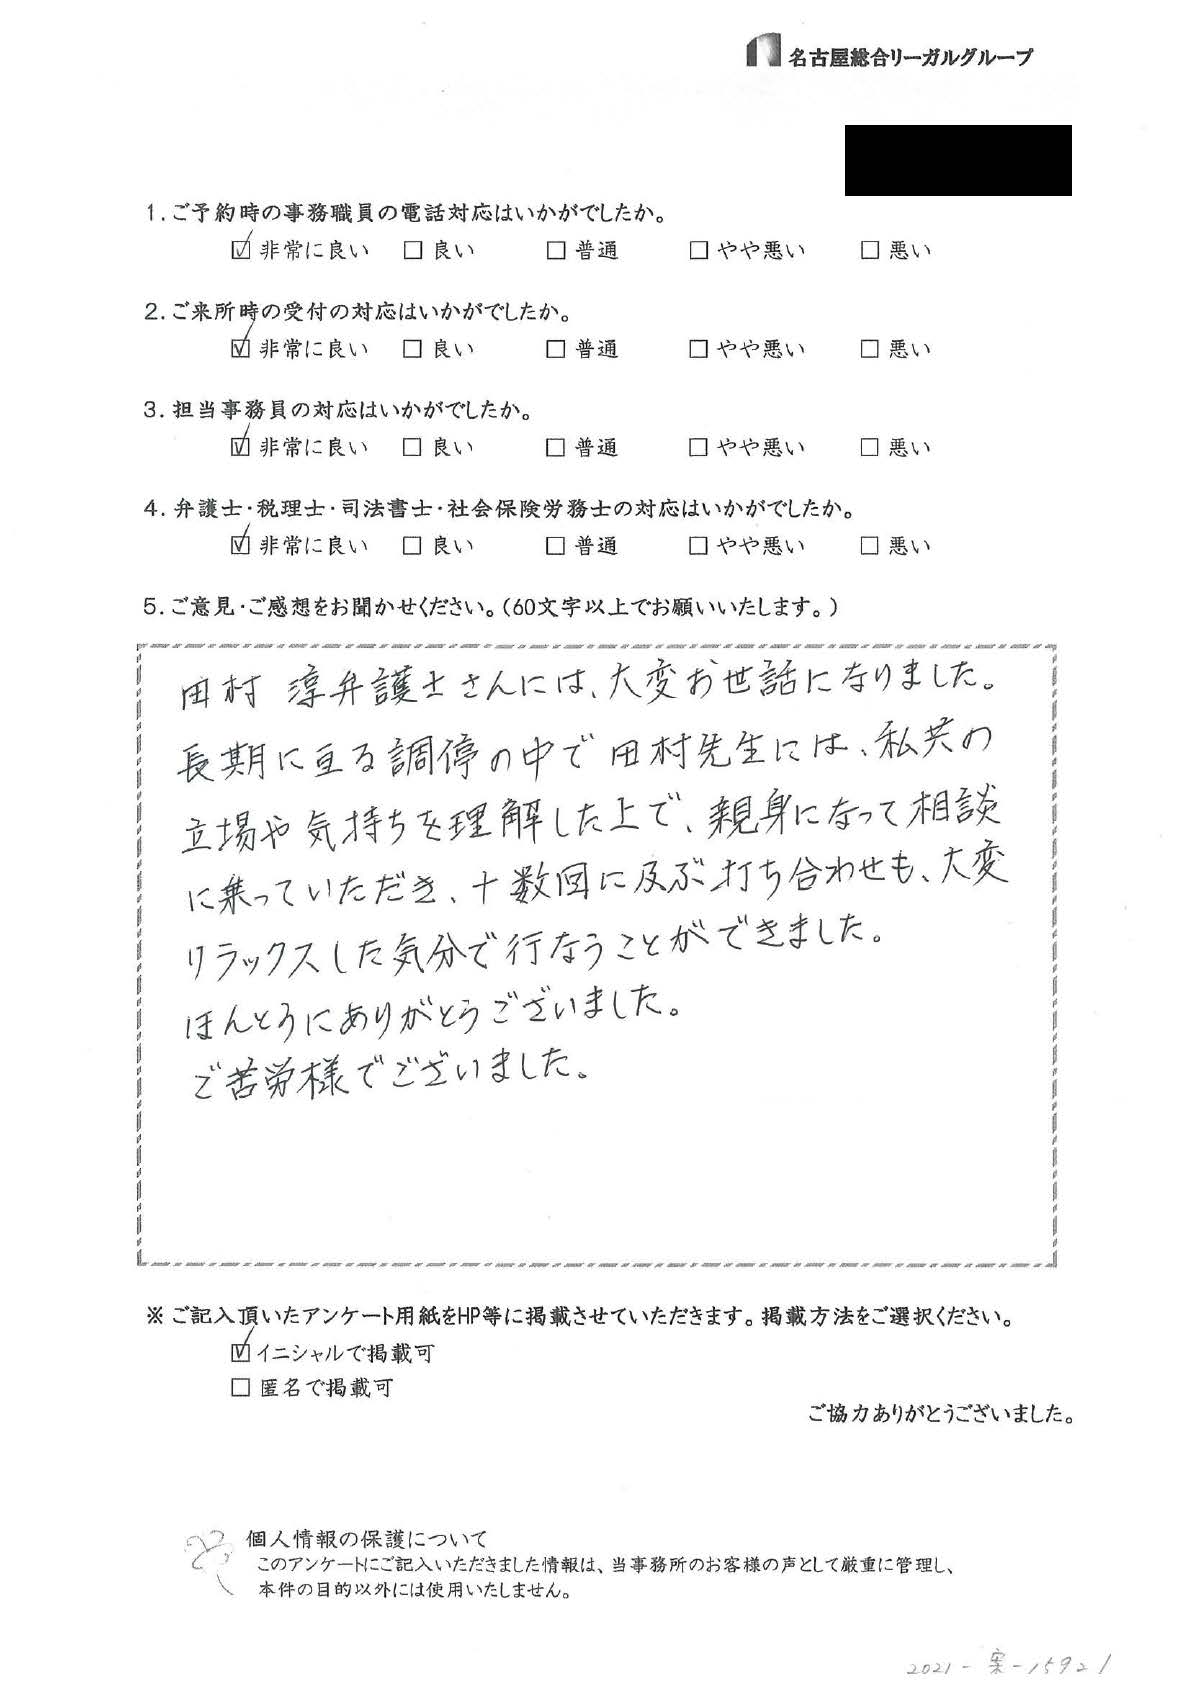 名古屋総合リーガルグループ
1．ご予約時の事務職員の電話対応はいかがでしたか。
☑ 非常に良い □ 良い □ 普通 □ やや悪い □ 悪い
2．ご来所時の受付の対応はいかがでしたか。
☑ 非常に良い □ 良い □ 普通 □ やや悪い □ 悪い
3．担当事務員の対応はいかがでしたか。
☑ 非常に良い □ 良い □ 普通 □ やや悪い □ 悪い
4．弁護士・税理士・司法書士・社会保険労務士の対応はいかがでしたか。
☑ 非常に良い □ 良い □ 普通 □ やや悪い □ 悪い
5．ご意見・ご感想をお聞かせください。（60文字以上でお願いいたします。）
田村 淳弁護士さんには、大変お世話になりました。
長期に亘る調停の中で田村先生には、私共の
立場や気持ちを理解した上で、親身になって相談
に乗っていただき、十数回に及ぶ打ち合わせも、大変
リラックスした気分で行なうことができました。
ほんとうにありがとうございました。
ご苦労様でございました。
※ ご記入頂いたアンケート用紙をHP等に掲載させていただきます。掲載方法をご選択ください。
☑ イニシャルで掲載可
□ 匿名で掲載可
ご協力ありがとうございました。
個人情報の保護について
このアンケートにご記入いただきました情報は、当事務所のお客様の声として厳重に管理し、
本件の目的以外には使用いたしません。
2021-案-15921